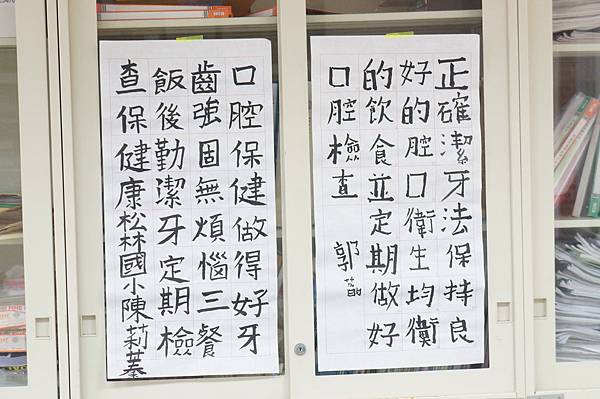 正確潔牙法保持良
好的腔口衛生均衡
的飲食並定期做好
口腔檢查 郭
口腔保健做得好牙
齒強固無煩惱三餐
飯後勤潔牙定期檢
查保健康松林國小陳莉蓁